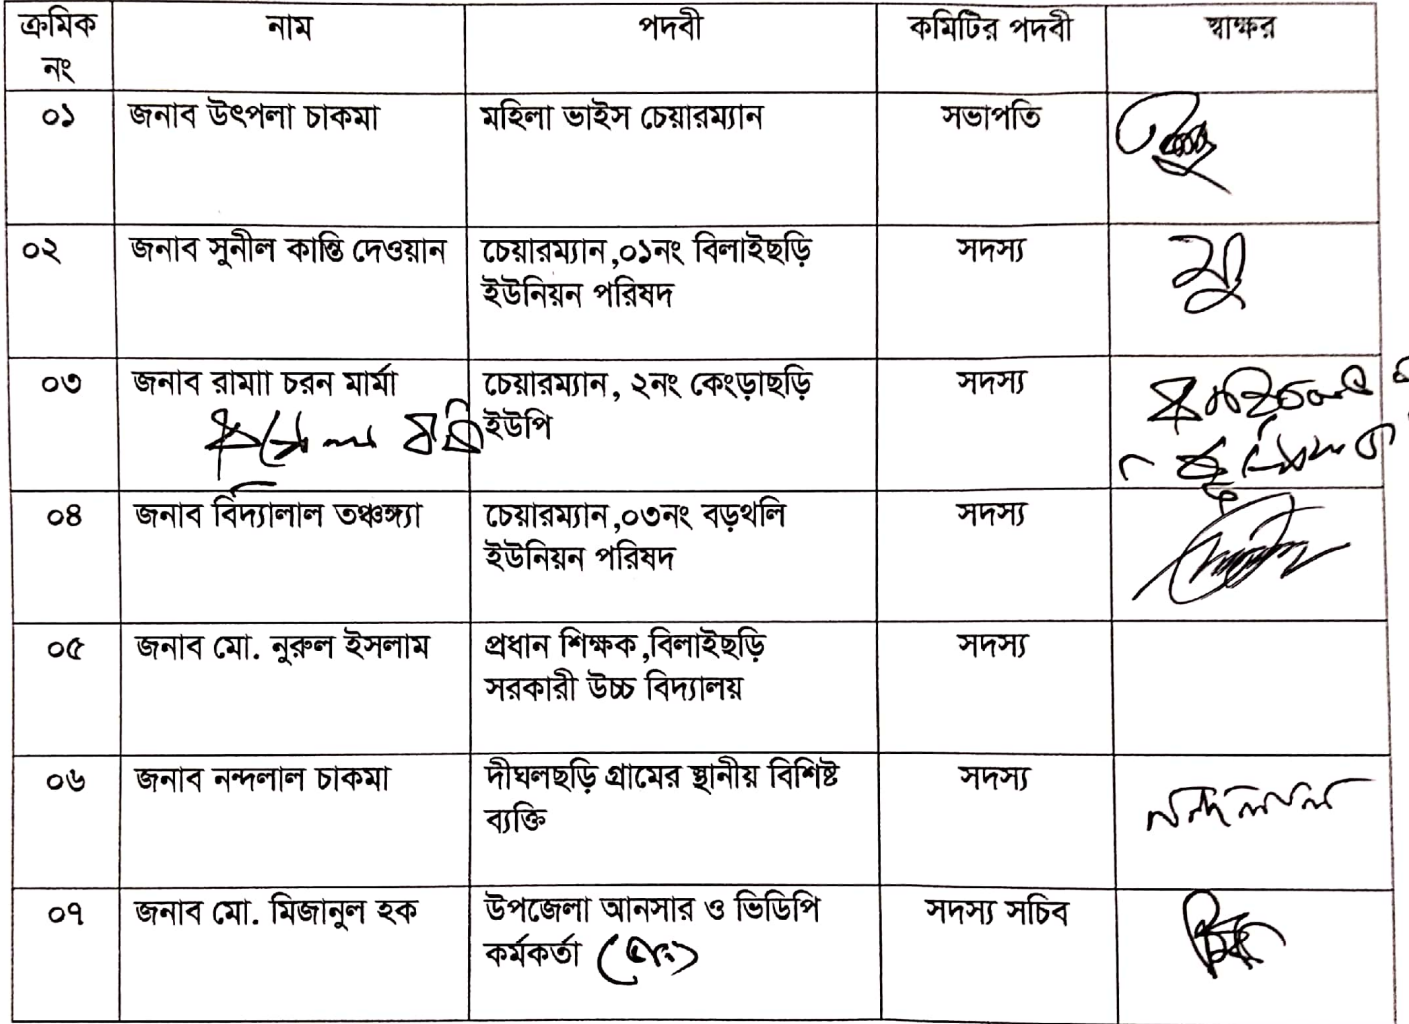 ক্রমিক নং নাম পদবী কমিটির পদবী স্বাক্ষর
০১ জনাব উৎপলা চাকমা মহিলা ভাইস চেয়ারম্যান সভাপতি
০২ জনাব সুনীল কান্তি দেওয়ান চেয়ারম্যান,০১নং বিলাইছড়ি সদস্য
ইউনিয়ন পরিষদ
০৩ জনাব রামাা চরন মার্মা চেয়ারম্যান, ২নং কেংড়াছড়ি সদস্য
ইউপি
০৪ জনাব বিদ্যালাল তঞ্চঙ্গ্যা চেয়ারম্যান,০৩নং বড়থলি সদস্য
ইউনিয়ন পরিষদ
০৫ জনাব মো. নুরুল ইসলাম প্রধান শিক্ষক,বিলাইছড়ি সদস্য
সরকারী উচ্চ বিদ্যালয়
০৬ জনাব নন্দলাল চাকমা দীঘলছড়ি গ্রামের স্থানীয় বিশিষ্ট সদস্য নন্দলাল
ব্যক্তি
০৭ জনাব মো. মিজানুল হক উপজেলা আনসার ও ভিডিপি সদস্য সচিব
কর্মকর্তা